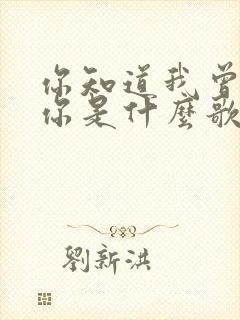 你知道我曾
你是什麼歌
劉新洪